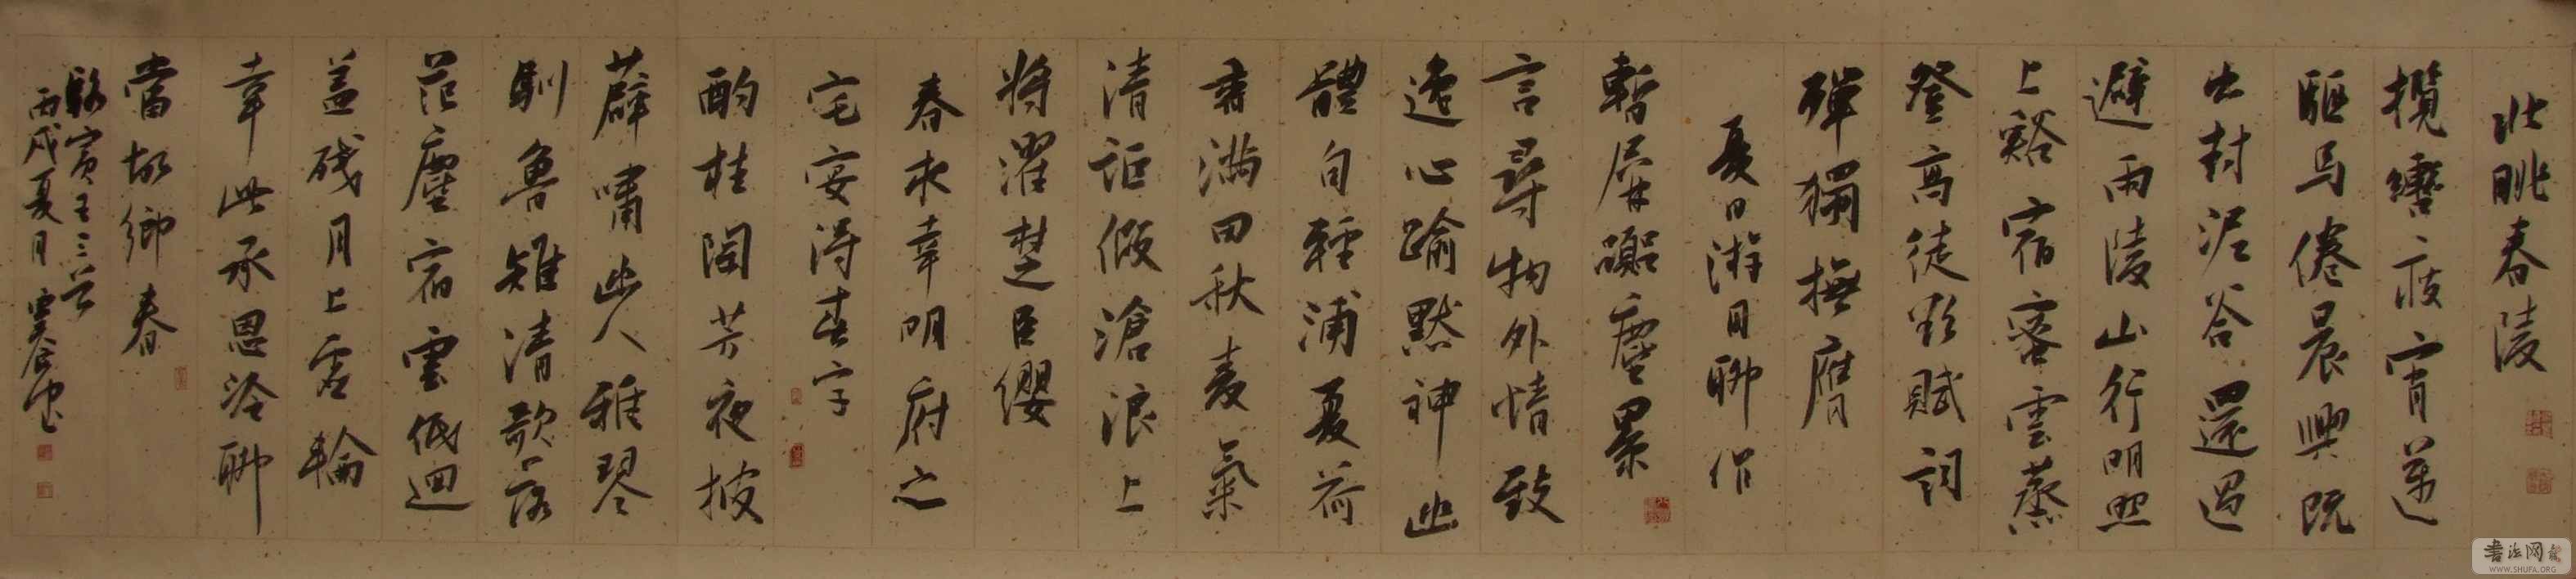 北眺春陵
攬轡疲宵邁
驅马倦晨興既
出封泥谷還過
避雨陵山行明照
上谿宿密雲蒸
登高徒欲賦詞
殫獨撫膺
夏日游目聊作
暫屏囂塵累
言尋物外情致
逸心逾默神幽
體自輕浦夏荷
香满田秋麦氣
清詎假滄浪上
将濯楚臣缨
春末幸明府之
宅宴得春字
酌桂陶芳夜披
薜嘯幽人雅琴
馴魯雉清歌落
范塵宿雲低迴
盖残月上虚輪
幸此承恩洽聊
當故鄉春
駱賓王三首
丙戌夏月
書法网
WWW.SHUFA.ORG